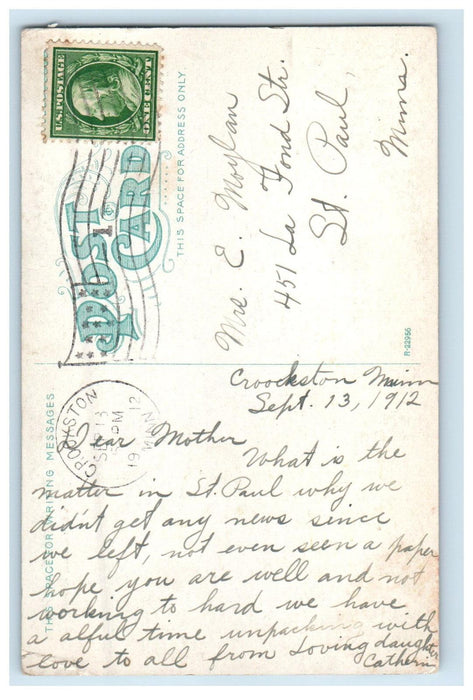 U.S. POSTAGE
ONE CENT
POST CARD
THIS SPACE FOR ADDRESS ONLY.
Mrs. E. Moylan
451 La Fond Str.
St. Paul,
Minns.
R-22956
THIS SPACE FOR WRITING MESSAGES
CROOKSTON
SEP 13
PM
1912
MINN
Crookston Minn
Sept. 13, 1912
Dear Mother
What is the
matter in St. Paul why we
didn't get any news since
we left, not even seen a paper
hope you are well and not
working to hard we have
a alful time unpacking with
love to all from Loving daughter
Catherin